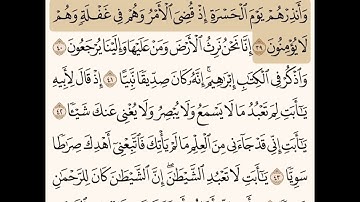 وَأَنذِرْهُمْ يَوْمَ الْحَسْرَةِ إِذْ قُضِيَ الْأَمْرُ وَهُمْ فِي غَفْلَةٍ وَهُمْ
لَا يُؤْمِنُونَ ٣٩ إِنَّا نَحْنُ نَرِثُ الْأَرْضَ وَمَنْ عَلَيْهَا وَإِلَيْنَا يُرْجَعُونَ ٤٠
وَاذْكُرْ فِي الْكِتَابِ إِبْرَاهِيمَ إِنَّهُ كَانَ صِدِّيقًا نَّبِيًّا ٤١ إِذْ قَالَ لِأَبِيهِ
يَا أَبَتِ لِمَ تَعْبُدُ مَا لَا يَسْمَعُ وَلَا يُبْصِرُ وَلَا يُغْنِي عَنكَ شَيْئًا ٤٢
يَا أَبَتِ إِنِّي قَدْ جَاءَنِي مِنَ الْعِلْمِ مَا لَمْ يَأْتِكَ فَاتَّبِعْنِي أَهْدِكَ صِرَاطًا
سَوِيًّا ٤٣ يَا أَبَتِ لَا تَعْبُدِ الشَّيْطَانَ إِنَّ الشَّيْطَانَ كَانَ لِلرَّحْمَٰنِ